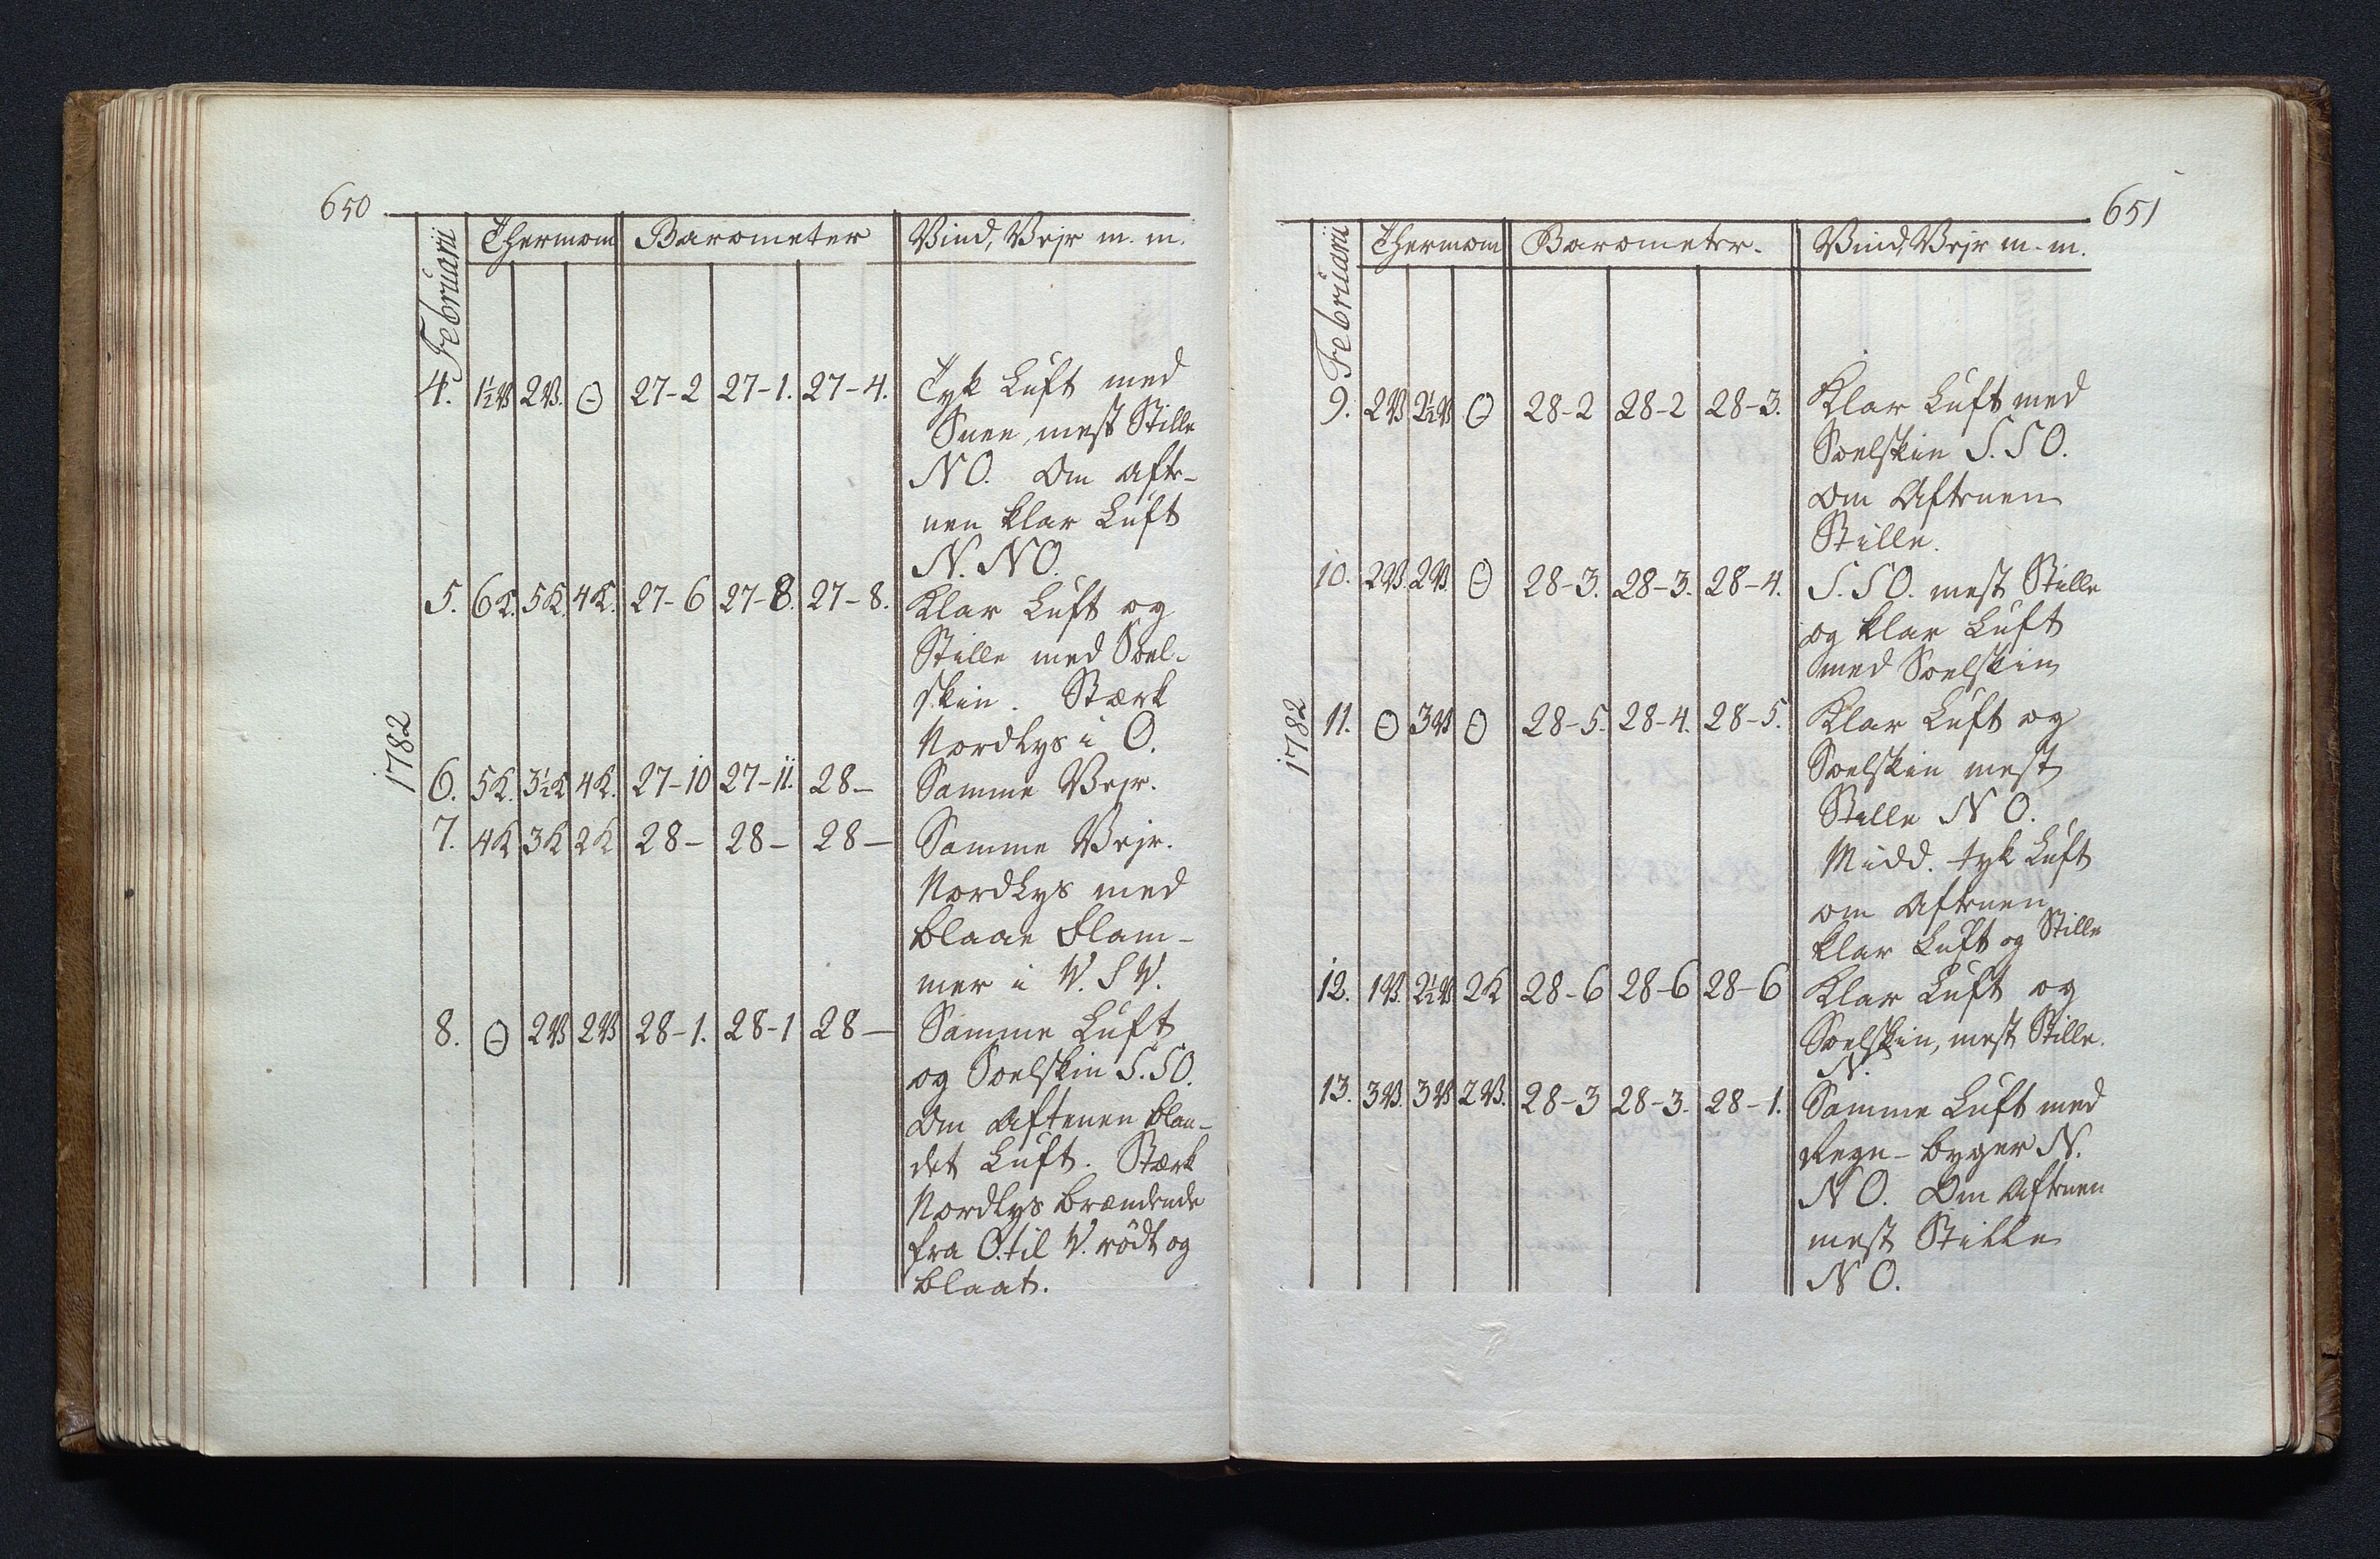 650
Februarii Thermom Barometer Vind, Vejr m. m.
4. 1½V 2V. ⊖ 27-2 27-1. 27-4. Tyk Luft med
Snee, mest Stille
NO. Om Aft-
nen klar Luft
N. NO.
5. 6K. 5K. 4K. 27-6 27-8. 27-8. Klar Luft og
Stille med Soel-
skin. Stærk
Nordlys i O.
1782
6. 5K. 3½K 4K. 27-10 27-11. 28- Samme Vejr.
7. 4K 3K 2K 28- 28- 28- Samme Vejr.
Nordlys med
blaae Flam-
mer i V. S V.
8. ⊖ 2V 2V 28-1. 28-1 28- Samme Luft
og Soelskin S. SO.
Om Aftenen blan-
det Luft. Stærk
Nordlys brændende
fra O. til V. rödt og
blaat.
651
Februarii Thermom Barometer. Vind, Vejr m. m.
9. 2V 2½V ⊖ 28-2 28-2 28-3. Klar Luft med
Soelskin S. SO.
Om Aftenen
Stille.
10. 2V. 2V. ⊖ 28-3. 28-3. 28-4. S. SO. mest Stille
og klar Luft
med Soelskin
1782
11. ⊖ 3V ⊖ 28-5. 28-4. 28-5. Klar Luft og
Soelskin mest
Stille N O.
Midd. tyk Luft
om Aftenen
klar Luft og Stille
12. 1V. 2½V 2K 28-6 28-6 28-6 Klar Luft og
Soelskin, mest Stille.
N.
13. 3V. 3V 2V. 28-3 28-3. 28-1. Samme Luft med
Regn-byger N.
NO. Om Aftenen
mest Stille
NO.